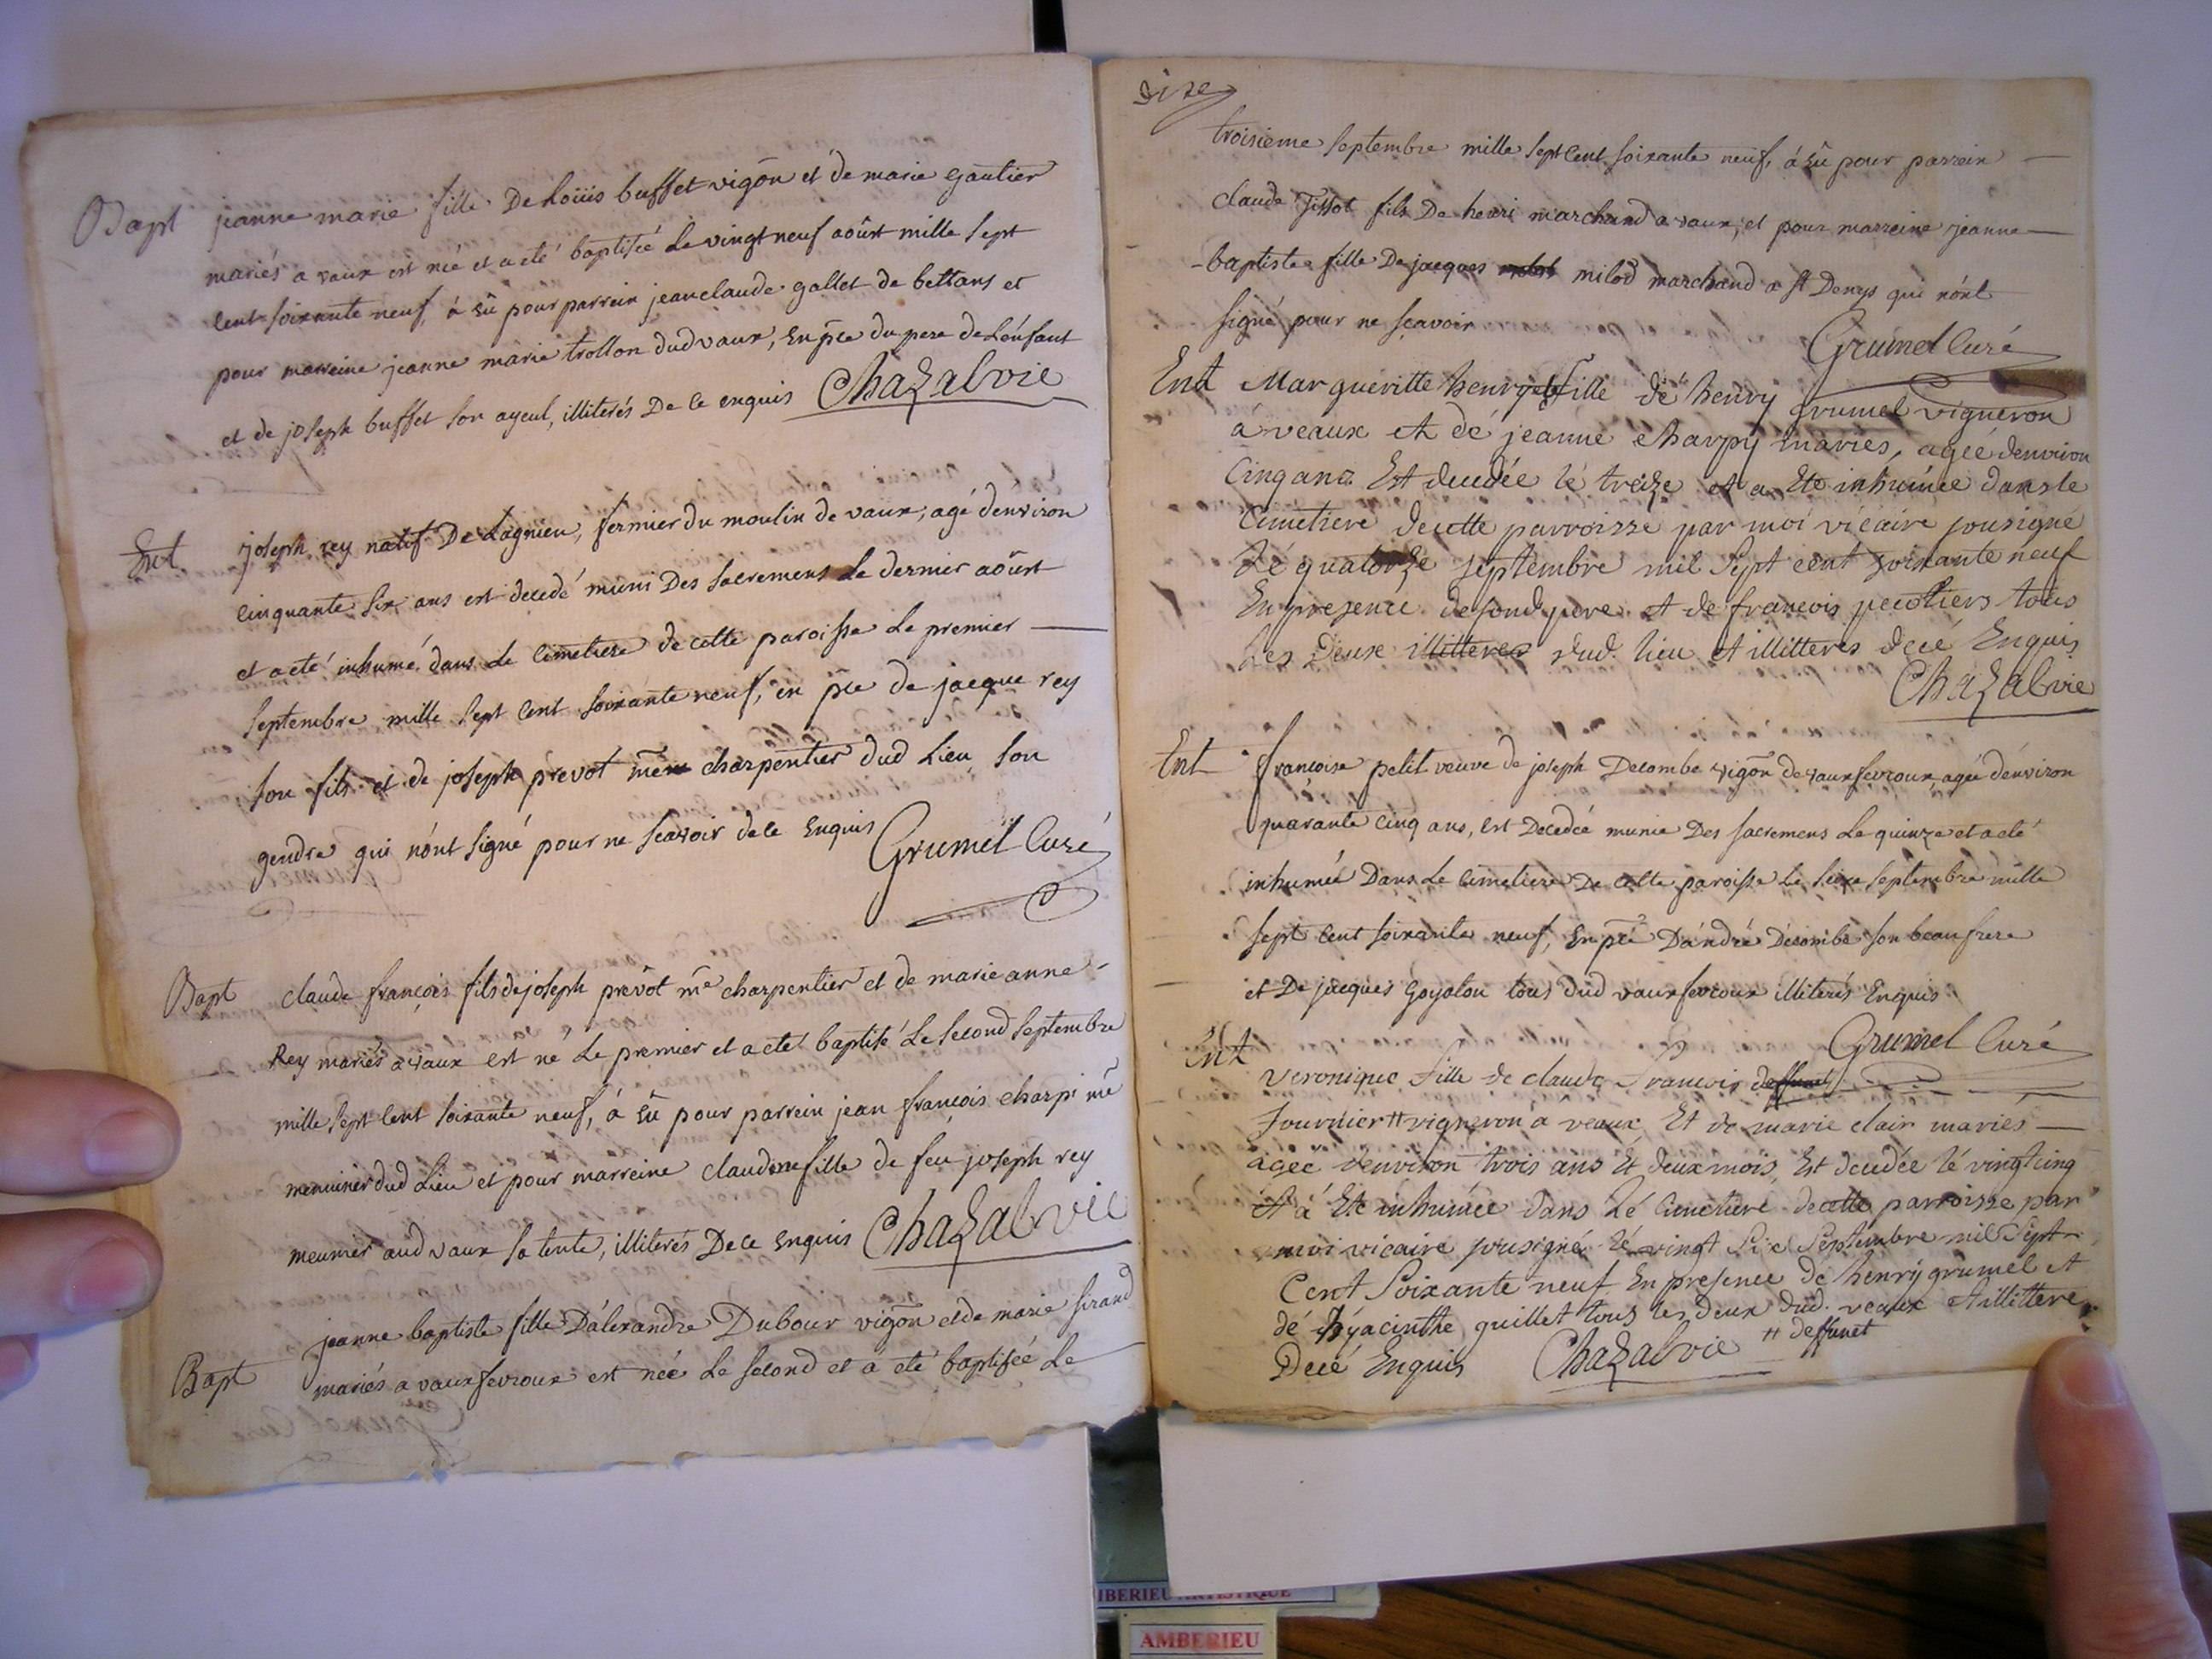 Bapt jeanne marie fille De Loüis buffet vigōn et de marie gautier
mariés a vaux est née et a eté baptisée Le vingt neuf aoûst mille sept
cent soixante neuf, á Eû pour parrein jean claude gallet de bettans et
pour marreine jeanne marie trollon dud vaux, En p̄ce du pere de L'énfant
et de joseph buffet son ayeul, illiterés De ce enquis Chazalvie
Ent joseph rey natif De Lagnieu, fermier du moulin de vaux, agé d'environ
cinquante six ans est decedé muni Des sacremens Le dernier aoûst
et a eté inhumé dans Le cimetiere de cette paroisse Le premier
septembre mille sept cent soixante neuf, en p̄ce de jacque rey
son fils et de joseph prevot charpentier dud Lieu son
gendre qui n'ónt signé pour ne scavoir de ce Enquis Grumel Curé
Bapt claude françois fils de joseph prevôt m̄e charpentier et de marie anne
Rey mariés a vaux est né Le premier et a eté baptisé Le second septembre
mille sept cent soixante neuf, á Eû pour parrein jean françois charpi m̄e
menuisier dud Lieu et pour marreine claudine fille de feu joseph rey
meunier aud vaux sa tente, illiterés De ce Enquis Chazalvie
jeanne baptiste fille D'álexandre Dubour vigōn et de marie sirand
Bapt mariés a vaux fevroux est née Le second et a eté baptisée Le
dize
troisieme septembre mille sept cent soixante neuf, á Eû pour parrein
claude Tissot fils De henri marchand a vaux, et pour marreine jeanne
-baptiste fille De jacques milod marchand a st Denys qui n'ónt
signé pour ne sçavoir Grumel Curé
Ent Margueritte henry fille dé henry grumel vigneron
á veaux et dé jeanne charpy mariés, agée denviron
Cinq ans Est decedée lé treize et a Eté inhumée dans le
Cimetiere de cette parroisse par moi vicaire sousigné
Lé quatorze septembre mil Sept cent soixante neuf
En presence de sond. pere et de francois pecotiers tous
Les Deux illitteres dud. lieu et illitteres decé Enquis
Chazalvie
Ent francoise petit veuve de joseph Decombe vigōn de vaux fevroux, agée d'énviron
quarante cinq ans, est Decedée munie Des sacremens Le quinze et a eté
inhumée Dans Le cimetiere De cette paroisse Le seize septembre mille
sept cent soixante neuf, En p̄ce D'ándré Decombe son beau frere
et De jacques Goyolon tous dud vaux fevroux illiterés Enquis
Grumel Curé
Ent Veronique fille de claude francois deffunet
fournier # vigneron á veaux Et de marie clair mariés
agee denviron trois ans Et deux mois, Est decedée lé vingt cinq
Et á Eté inhumée dans Lé Cimetiere de cette parroisse par
moi vicaire sousigné lé vingt Six Septembre mil Sept
Cent Soixante neuf En presence de henrÿ grumel et
dé hyacinthe guillet tous les deux dud. veaux et illittere
Decé Enquis Chazalvie # deffunet
AMBERIEU ARTISTIQUE
AMBERIEU